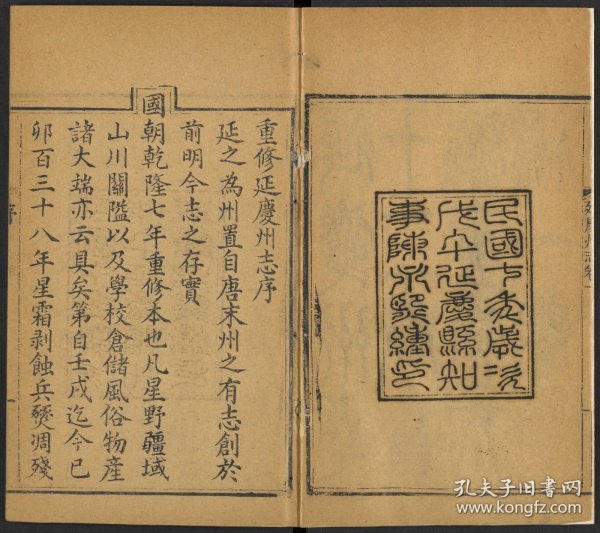 民國七年歲次
戊午延慶縣知
事陳
續印
重修延慶州志序
延之為州置自唐末州之有志創於
前明今志之存實
國朝乾隆七年重修本也凡星野疆域
山川關隘以及學校倉儲風俗物產
諸大端亦云具矣第自壬戌迄今己
卯百三十八年星霜剥蝕兵燹凋殘
延慶州志卷
序
孔夫子旧书网
www.kongfz.com